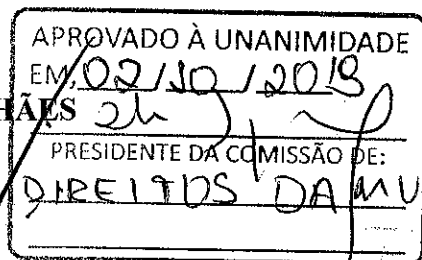 APROVADO À UNANIMIDADE
EM, 02/10/2019
HÃES
PRESIDENTE DA COMISSÃO DE:
DIREITOS DA MU